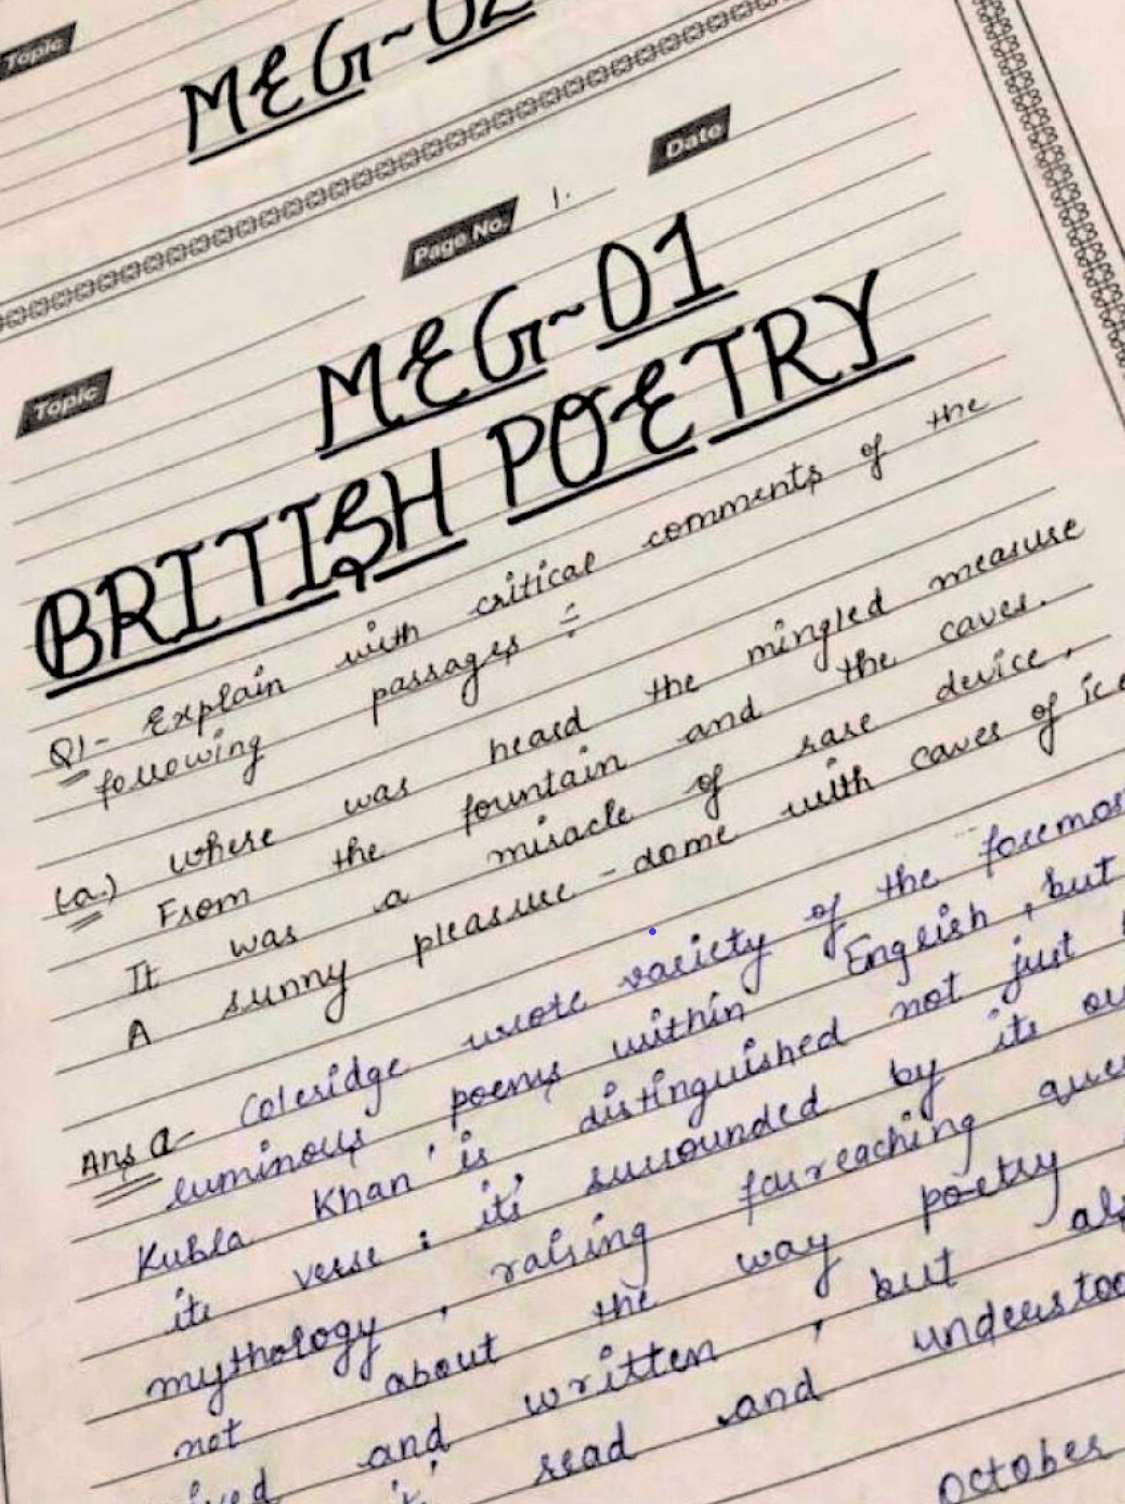 Topic
MEG-02
Date
Page No. 1.
Topic
MEG-01
BRITISH POETRY
Q1- Explain with critical comments of the
following passages :-
(a.) where was heard the mingled measure
From the fountain and the caves.
It was a miracle of rare device,
A sunny pleasure-dome with caves of ice
Ans a- Coleridge wrote variety of the
luminous poems within English, but
Kubla Khan' is distinguished not just
its verse : it's surrounded by its
mythology, raising farreaching
not about the way poetry
and written, but
read and
October